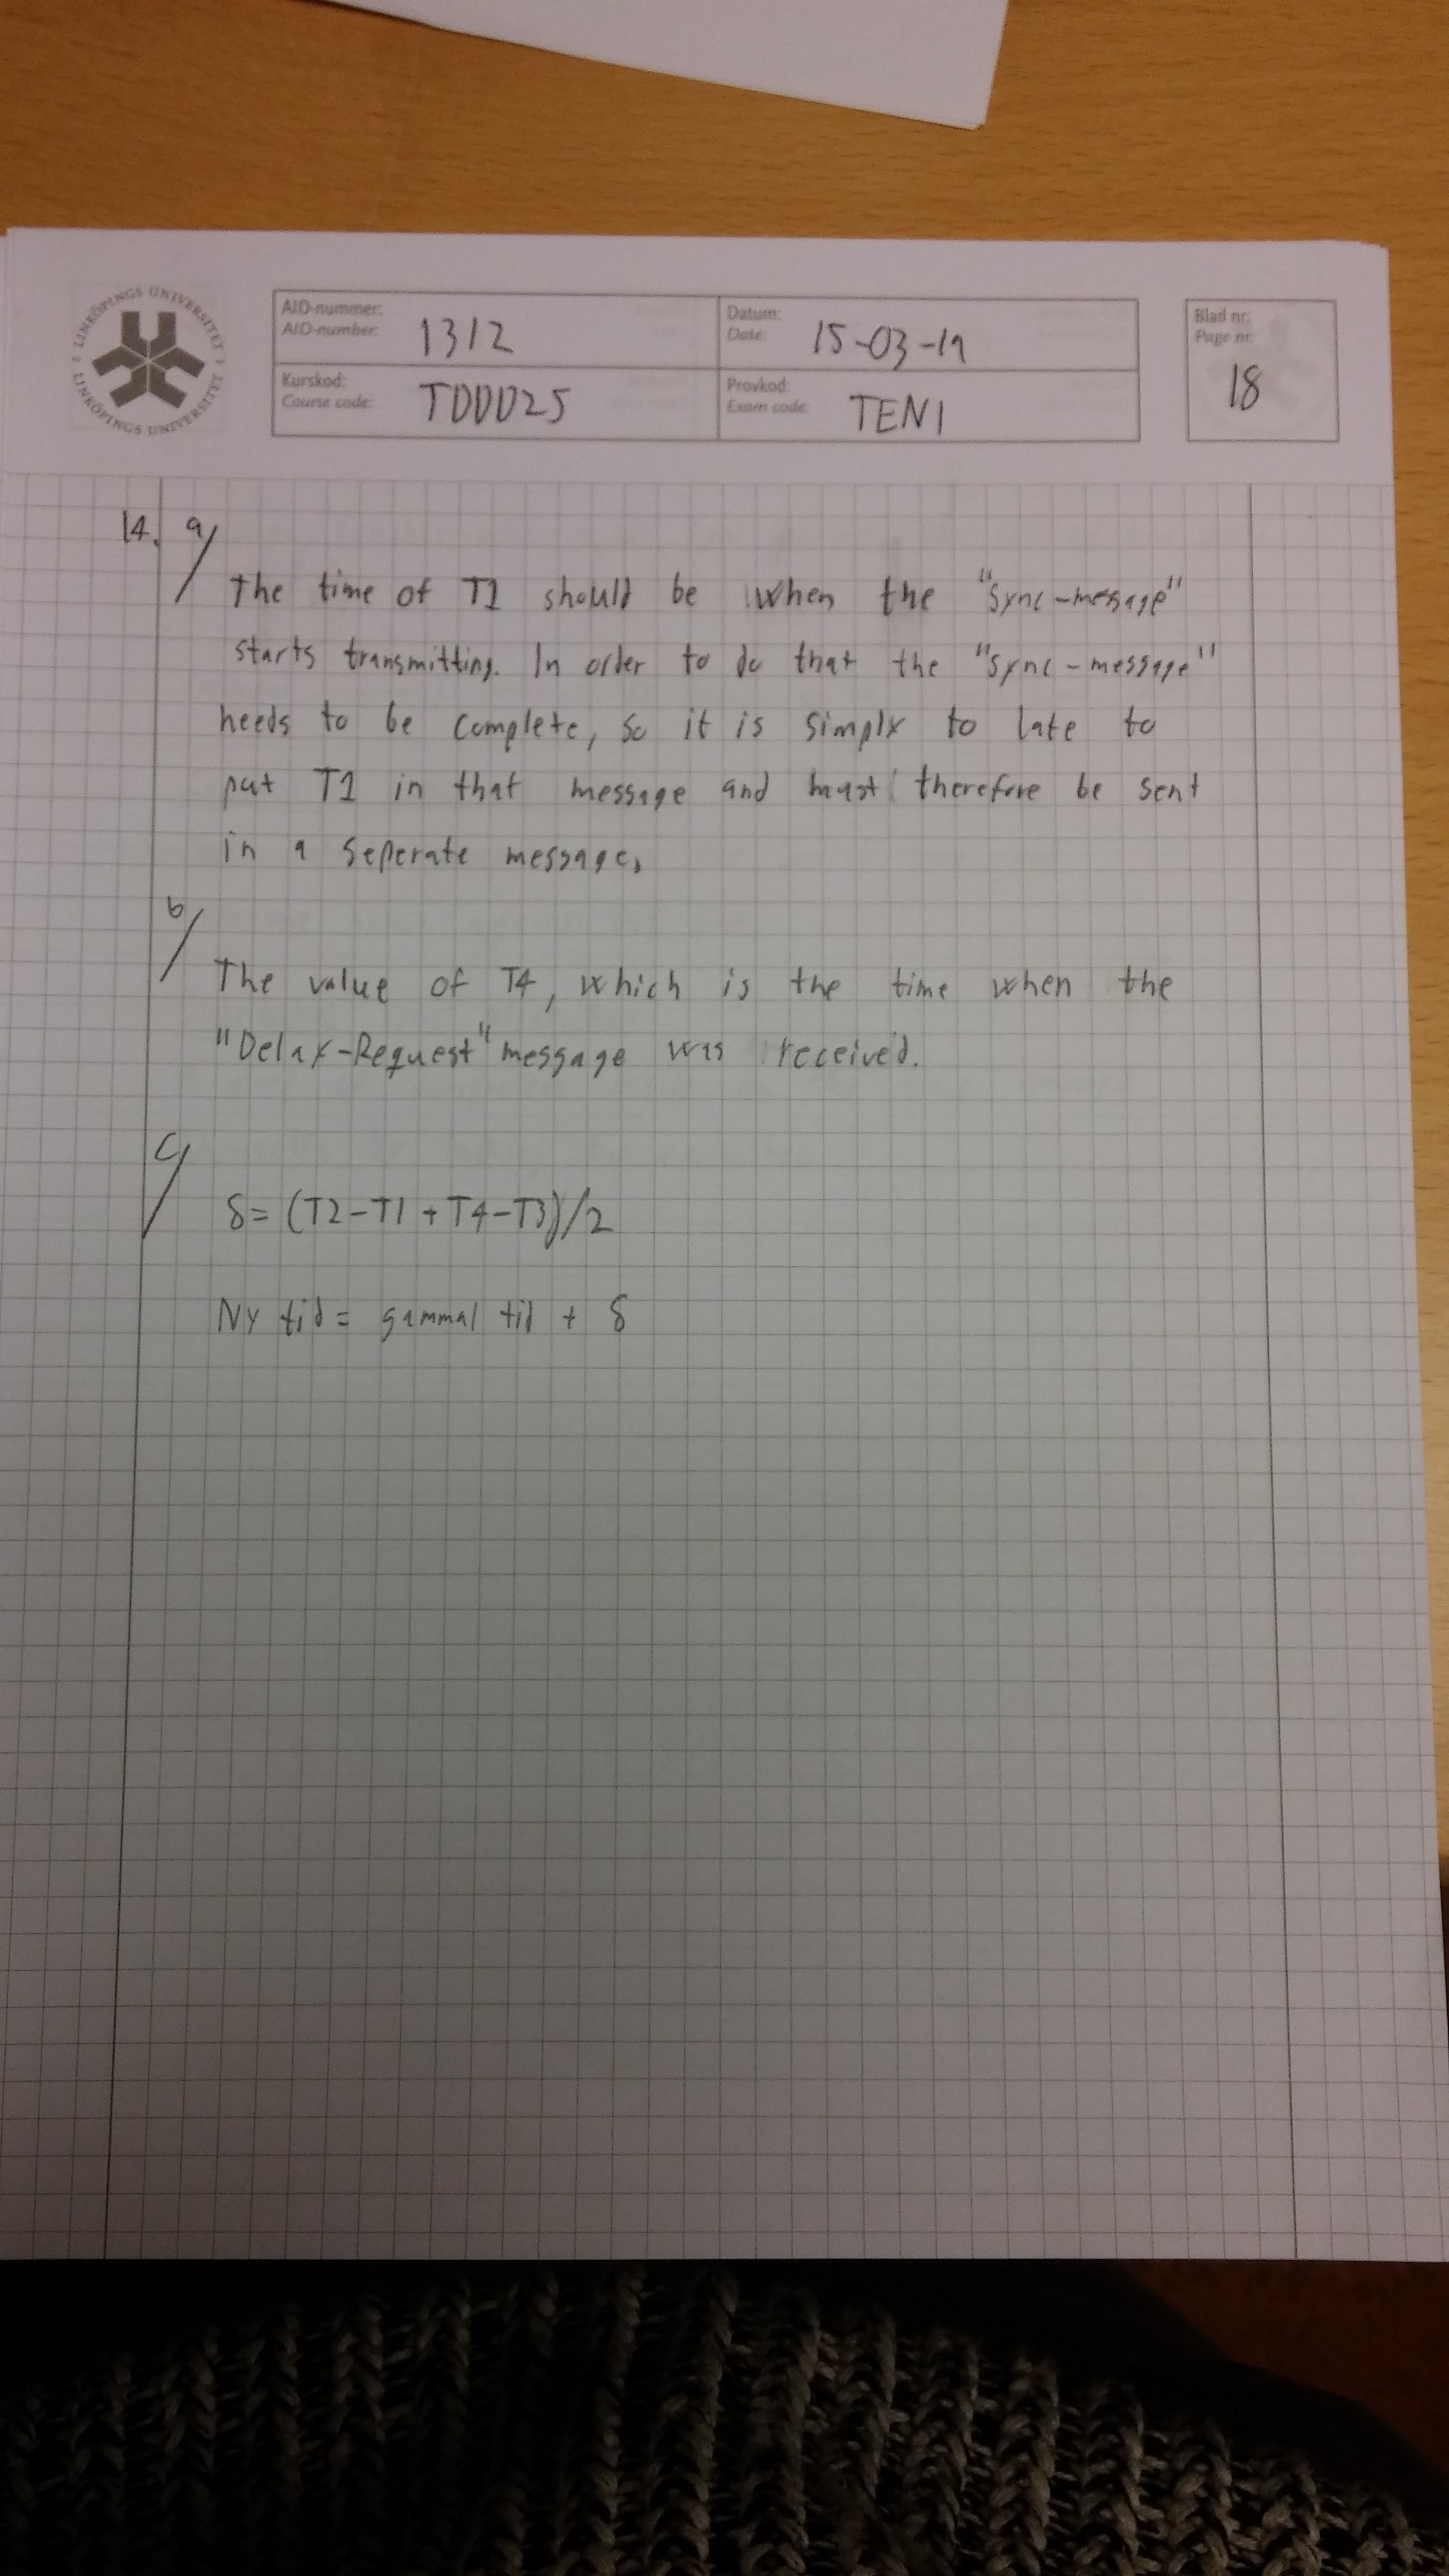 LINKÖPINGS UNIVERSITET
LINKÖPINGS UNIVERSITET
AID-nummer:
AID-number:
1312
Datum:
Date:
15-03-19
Blad nr:
Page nr:
18
Kurskod:
Course code:
TDDD25
Provkod:
Exam code:
TEN1
14. a/
The time of T1 should be when the "Sync-message"
starts transmitting. In order to do that the "Sync-message"
needs to be complete, so it is simply to late to
put T1 in that message and must therefore be sent
in a seperate message.
b/
The value of T4, which is the time when the
"Delay-Request" message was received.
c/
δ= (T2-T1+T4-T3)/2
Ny tid = gammal tid + δ